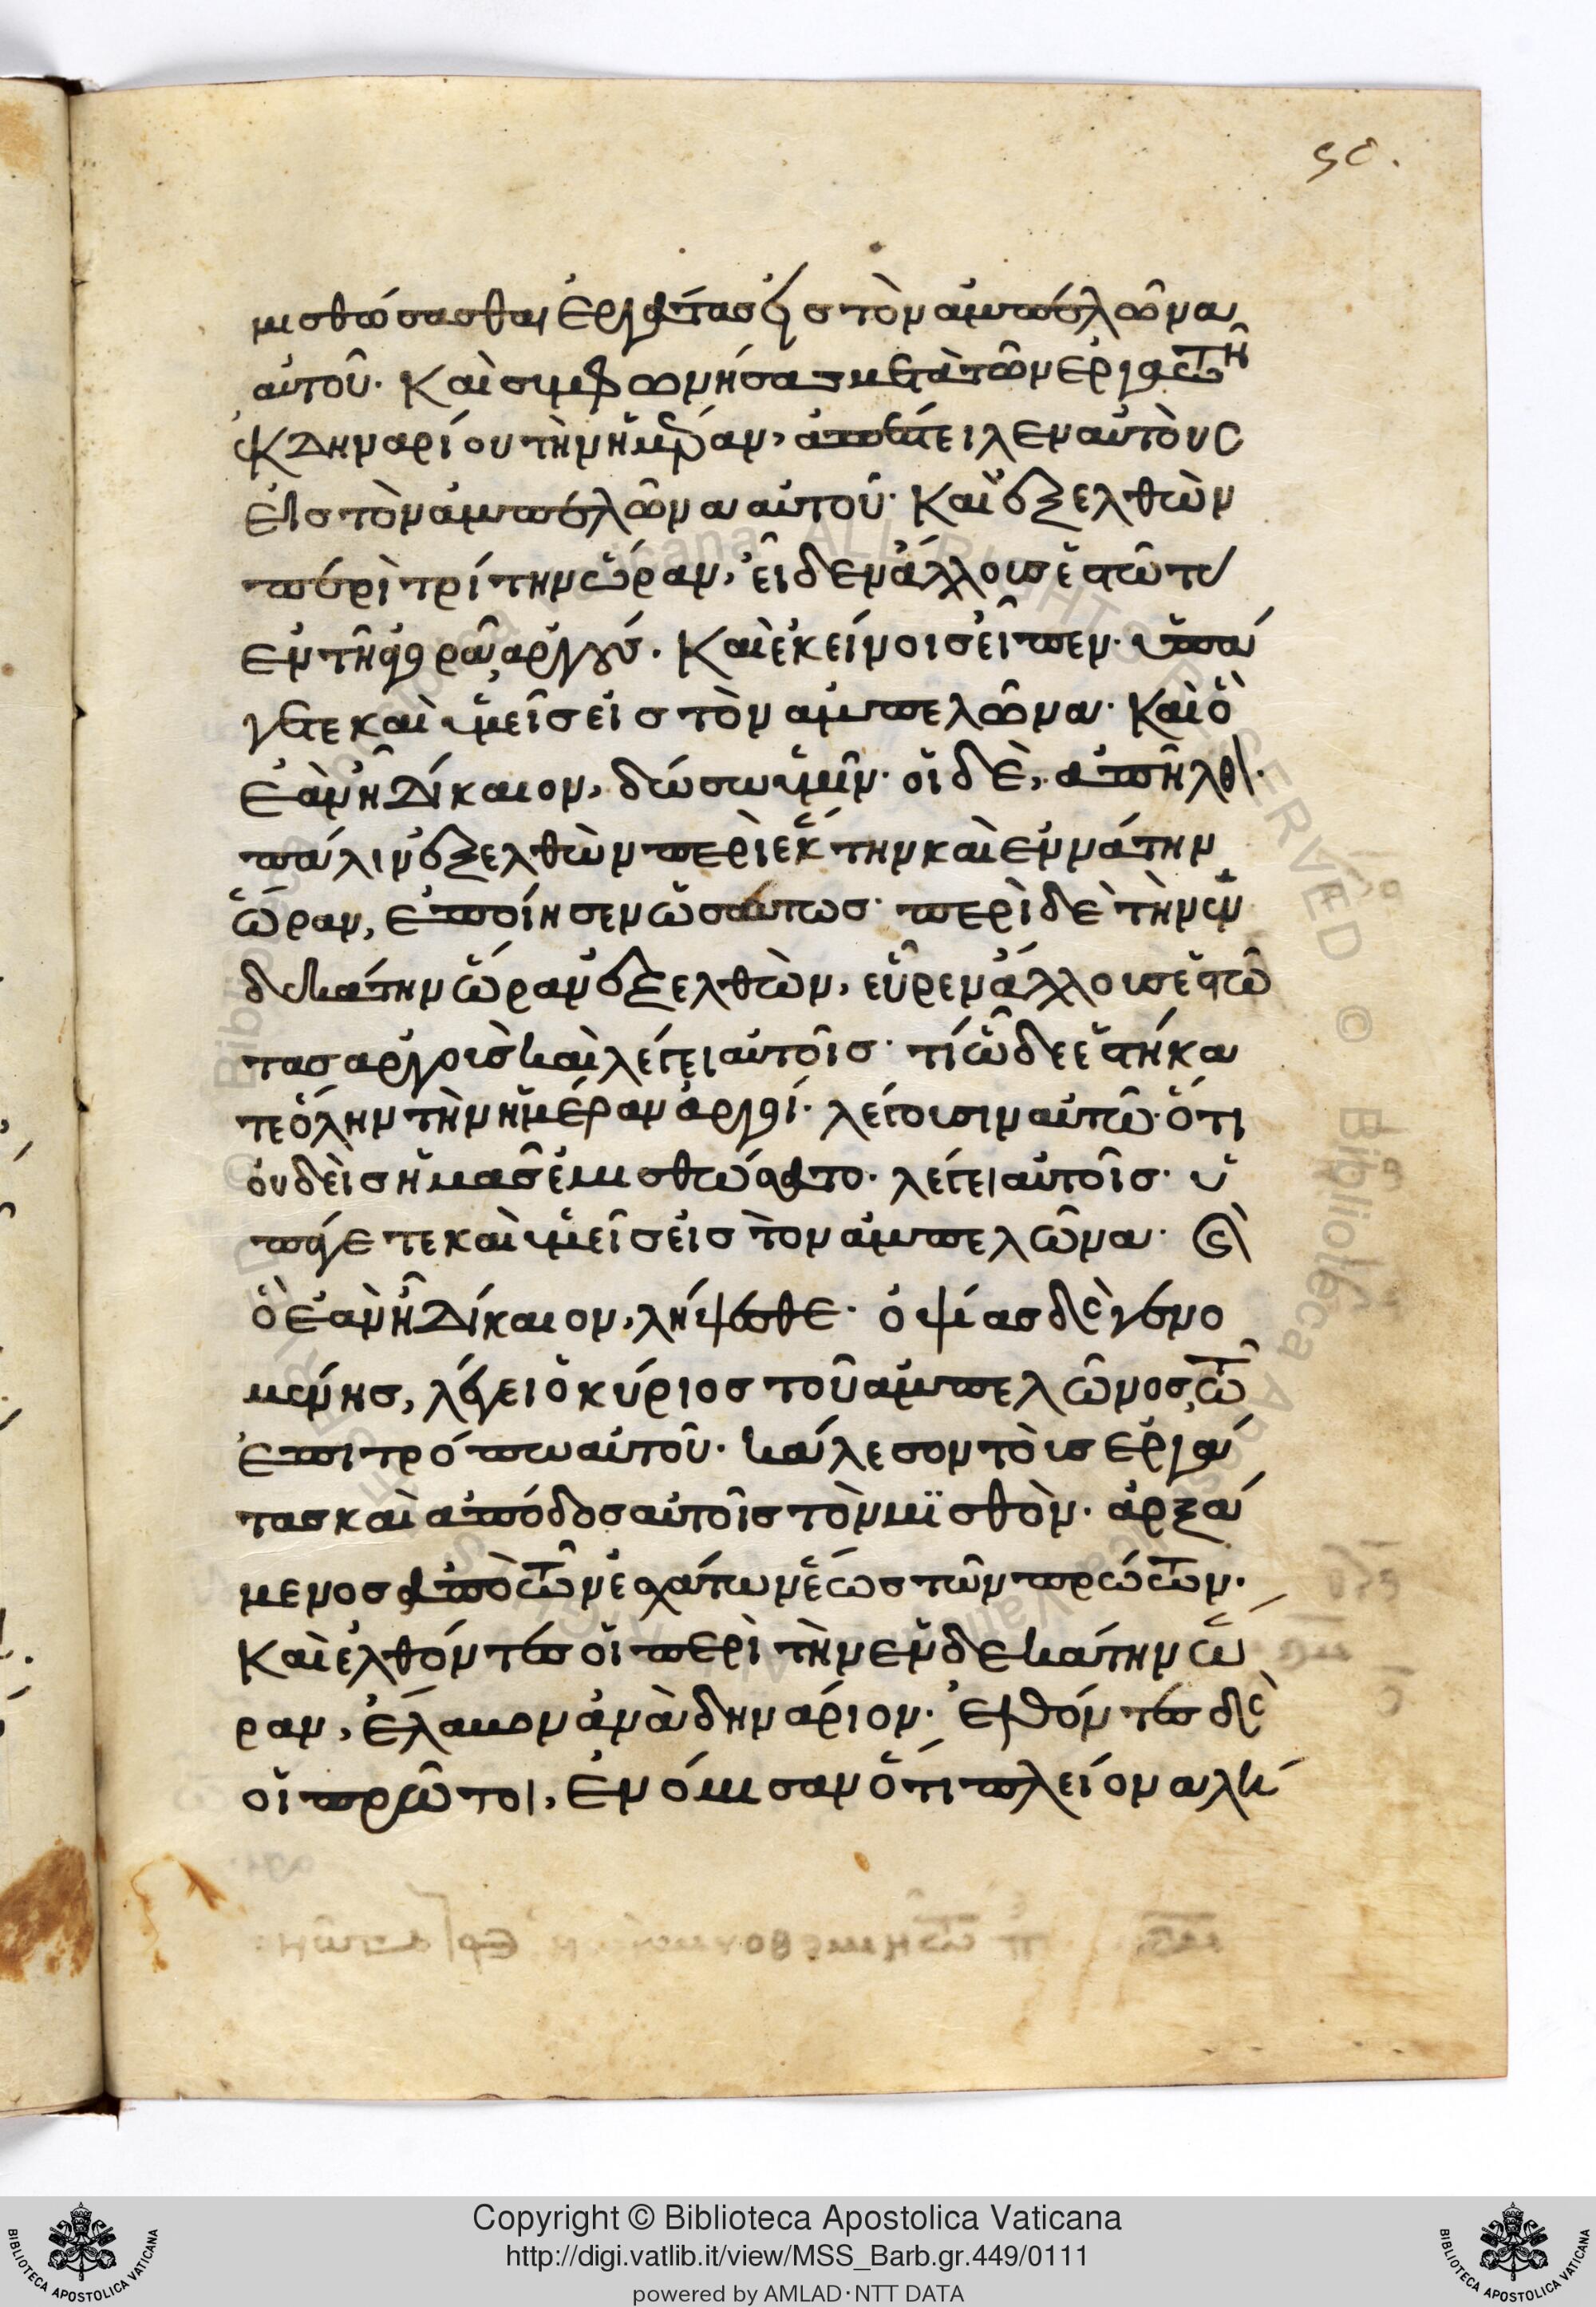 50.
μισθώσασθαι ἐργάτας εἰς τὸν ἀμπελῶνα
αὐτοῦ. Καὶ συμφωνήσας μετὰ τῶν ἐργατῶν
ἐκ δηναρίου τὴν ἡμέραν, ἀπέστειλεν αὐτοὺς
εἰς τὸν ἀμπελῶνα αὐτοῦ. Καὶ ἐξελθὼν
περὶ τρίτην ὥραν, εἶδεν ἄλλους ἑστῶτας
ἐν τῇ ἀγορᾷ ἀργούς. Καὶ ἐκείνοις εἶπεν. ὑπά
γετε καὶ ὑμεῖς εἰς τὸν ἀμπελῶνα. Καὶ ὃ
ἐὰν ᾖ δίκαιον, δώσω ὑμῖν. οἱ δὲ, ἀπῆλθον.
πάλιν ἐξελθὼν περὶ ἕκτην καὶ ἐννάτην
ὥραν, ἐποίησεν ὡσαύτως. περὶ δὲ τὴν ἑν
δεκάτην ὥραν ἐξελθὼν, εὗρεν ἄλλους ἑστῶ
τας ἀργοὺς καὶ λέγει αὐτοῖς. τί ὧδε ἑστήκα
τε ὅλην τὴν ἡμέραν ἀργοί. λέγουσιν αὐτῷ. ὅτι
οὐδεὶς ἡμᾶς ἐμισθώσατο. λέγει αὐτοῖς. ὑ
πάγετε καὶ ὑμεῖς εἰς τὸν ἀμπελῶνα. καὶ
ὃ ἐὰν ᾖ δίκαιον, λήψεσθε. ὀψίας δὲ γενο
μένης, λέγει ὁ κύριος τοῦ ἀμπελῶνος, τῷ
ἐπιτρόπω αὐτοῦ. κάλεσον τοὺς ἐργά
τας καὶ ἀπόδος αὐτοῖς τὸν μϊσθὸν. ἀρξά
μενος ἀπὸ τῶν ἐσχάτων ἕως τῶν πρώτων.
Καὶ ἐλθόντες οἱ περὶ τὴν ἑνδεκάτην ὥ
ραν, ἔλαβον ἀνὰ δηνάριον. ἐλθόντες δὲ
οἱ πρῶτοι, ἐνόμισαν ὅτι πλείονα λή
Copyright © Biblioteca Apostolica Vaticana
http://digi.vatlib.it/view/MSS_Barb.gr.449/0111
powered by AMLAD·NTT DATA
BIBLIOTECA APOSTOLICA VATICANA
BIBLIOTECA APOSTOLICA VATICANA